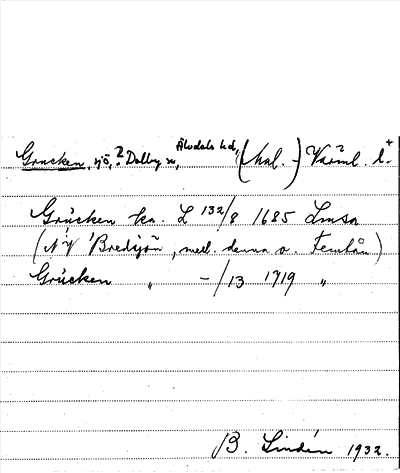 Grucken, sjö, ? Dalby sn, Älvdals hd, (kal. -) Värml. l.+
Grücken ka. L 132/8 1685 Lmsa
(N V Bredsjön, med denna o. Femtån)
Grücken " -/13 1719 "
B. Lindén 1932.